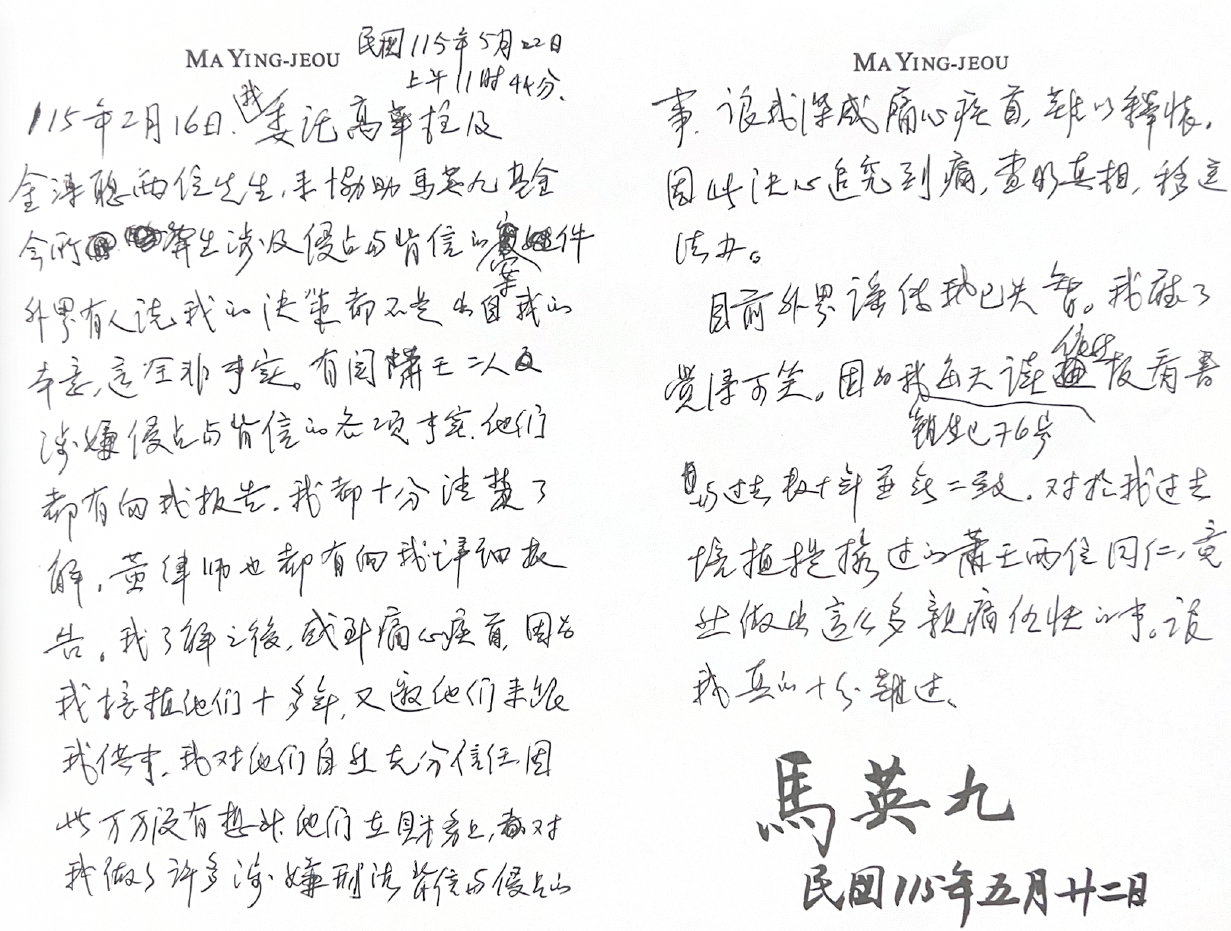 MA YING-JEOU
民國115年5月22日
上午11时44分.
115年2月16日、我委託高華柱及
金溥聰兩位先生,來協助馬英九基金
会所發生涉及侵占与背信的案件
外界有人说我的決策都不是出自我的
本意,这全非事实。有関蕭王二人
涉嫌侵占与背信的各项事实,他们
都有向我报告.我都十分清楚了
解,黄律师也都有向我详细报
告。我了解之後,感到痛心疾首,因为
我培植他们十多年,又邀他们来跟
我供事,我对他们自然充分信任因
此万万没有想到他们在財务上,都对
我做了许多涉嫌刑法背信与侵占的
MA YING-JEOU
事,让我深感痛心疾首,難以釋怀,
因此决心追究到底,查明真相,移送
法办。
目前外界谣传我已失智。我听了
覺得可笑。因为我每天读 报看書
与过去数十年並無二致.对於我过去
培植提携过的蕭王兩位同仁,竟
然做出這么多親痛仇快的事。让
我真的十分難过。
馬英九
民國115年五月廿二日